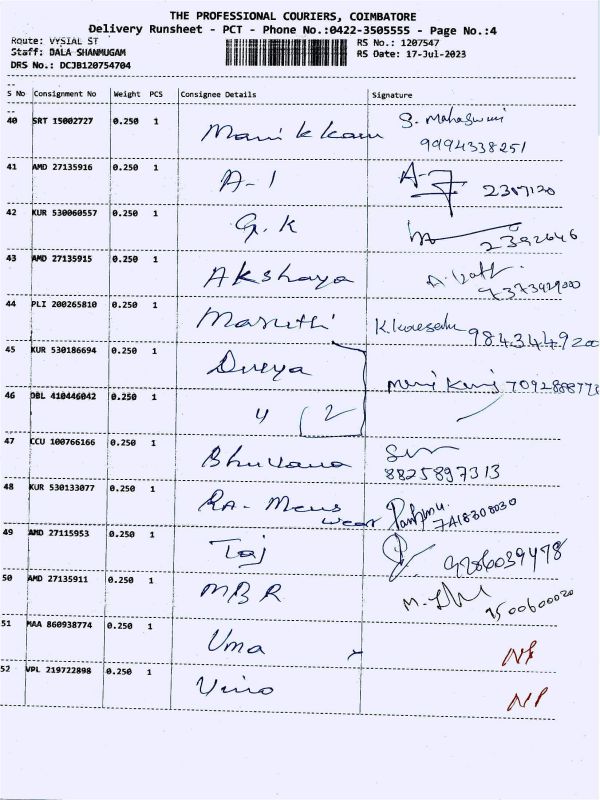 THE PROFESSIONAL COURIERS, COIMBATORE
Delivery Runsheet - PCT - Phone No.:0422-3505555 - Page No.:4
Route: VYSIAL ST
RS No.: 1207547
Staff: DALA SHANMUGAM
RS Date: 17-Jul-2023
DRS No.: DCJB120754704
S No Consignment No Weight PCS Consignee Details Signature
40 SRT 15002727 0.250 1 Manikkam S. Maheswari
9994338251
41 AMD 27135916 0.250 1 A-1 2307120
42 KUR 530060557 0.250 1 G.K 2392646
43 AMD 27135915 0.250 1 Akshaya
9373929000
44 PLI 200265810 0.250 1 Maruthi 9843449200
45 KUR 530186694 0.250 1 Durya
46 DBL 410446042 0.250 1 " 2
47 CCU 100766166 0.250 1 Bhuvana
8825897313
48 KUR 530133077 0.250 1 RA- Mens
wear 7418308030
49 AMD 27115953 0.250 1 Taj 9286039478
50 AMD 27135911 0.250 1 MBR
9500600020
51 MAA 860938774 0.250 1 Uma
52 VPL 219722898 0.250 1 Vino NP